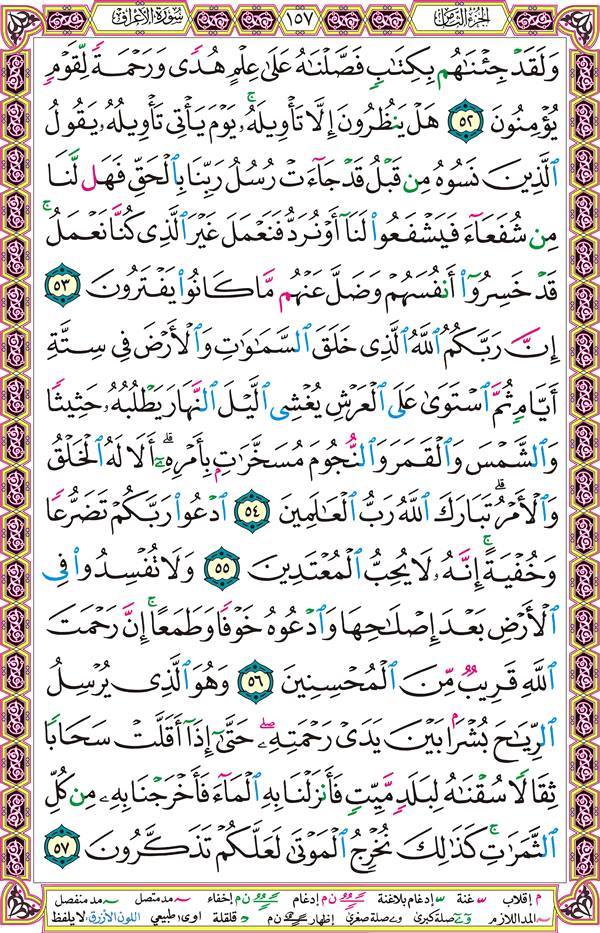 سُورَةُ الأَعْرَافِ ١٥٧ الجزء الثامن
وَلَقَدْ جِئْنَٰهُم بِكِتَٰبٍ فَصَّلْنَٰهُ عَلَىٰ عِلْمٍ هُدًى وَرَحْمَةً لِّقَوْمٍ
يُؤْمِنُونَ ٥٢ هَلْ يَنظُرُونَ إِلَّا تَأْوِيلَهُۥۚ يَوْمَ يَأْتِى تَأْوِيلُهُۥ يَقُولُ
ٱلَّذِينَ نَسُوهُ مِن قَبْلُ قَدْ جَآءَتْ رُسُلُ رَبِّنَا بِٱلْحَقِّ فَهَل لَّنَا
مِن شُفَعَآءَ فَيَشْفَعُوا۟ لَنَآ أَوْ نُرَدُّ فَنَعْمَلَ غَيْرَ ٱلَّذِى كُنَّا نَعْمَلُۚ
قَدْ خَسِرُوٓا۟ أَنفُسَهُمْ وَضَلَّ عَنْهُم مَّا كَانُوا۟ يَفْتَرُونَ ٥٣
إِنَّ رَبَّكُمُ ٱللَّهُ ٱلَّذِى خَلَقَ ٱلسَّمَٰوَٰتِ وَٱلْأَرْضَ فِى سِتَّةِ
أَيَّامٍ ثُمَّ ٱسْتَوَىٰ عَلَى ٱلْعَرْشِ يُغْشِى ٱلَّيْلَ ٱلنَّهَارَ يَطْلُبُهُۥ حَثِيثًا
وَٱلشَّمْسَ وَٱلْقَمَرَ وَٱلنُّجُومَ مُسَخَّرَٰتٍۭ بِأَمْرِهِۦٓۗ أَلَا لَهُ ٱلْخَلْقُ
وَٱلْأَمْرُۗ تَبَارَكَ ٱللَّهُ رَبُّ ٱلْعَٰلَمِينَ ٥٤ ٱدْعُوا۟ رَبَّكُمْ تَضَرُّعًا
وَخُفْيَةًۚ إِنَّهُۥ لَا يُحِبُّ ٱلْمُعْتَدِينَ ٥٥ وَلَا تُفْسِدُوا۟ فِى
ٱلْأَرْضِ بَعْدَ إِصْلَٰحِهَا وَٱدْعُوهُ خَوْفًا وَطَمَعًاۚ إِنَّ رَحْمَتَ
ٱللَّهِ قَرِيبٌ مِّنَ ٱلْمُحْسِنِينَ ٥٦ وَهُوَ ٱلَّذِى يُرْسِلُ
ٱلرِّيَٰحَ بُشْرًۢا بَيْنَ يَدَىْ رَحْمَتِهِۦۖ حَتَّىٰٓ إِذَآ أَقَلَّتْ سَحَابًا
ثِقَالًا سُقْنَٰهُ لِبَلَدٍ مَّيِّتٍ فَأَنزَلْنَا بِهِ ٱلْمَآءَ فَأَخْرَجْنَا بِهِۦ مِن كُلِّ
ٱلثَّمَرَٰتِۚ كَذَٰلِكَ نُخْرِجُ ٱلْمَوْتَىٰ لَعَلَّكُمْ تَذَكَّرُونَ ٥٧
م إقلاب غنة إدغام بلاغنة ن م إدغام ن م إخفاء مد متصل مد منفصل
المد اللازم صلة كبرى صلة صغرى إظهار ن م قلقلة اوى طبيعي اللون الأزرق: لا يلفظ